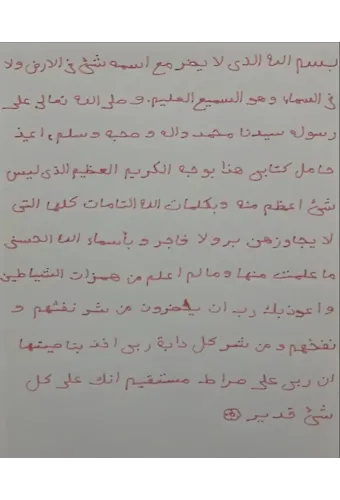 بسم الله الذى لا يضر مع اسمه شئ فى الارض ولا
فى السماء وهو السميع العليم. و صلى الله تعالى على
رسوله سيدنا محمد واله و صحبه وسلم، اعيذ
حامل كتابى هذا بوجه الكريم العظيم الذى ليس
شئ اعظم منه و بكلمات الله التامات كلها التى
لا يجاوزهن بر ولا فاجر و بأسماء الله الحسنى
ما علمت منها و مالم اعلم من همزات الشياطين
و اعوذ بك رب ان يحضرون من شر نفثهم و
نفخهم و من شر كل دابة ربى اخذ بناصيتها
ان ربى على صراط مستقيم انك على كل
شئ قدير